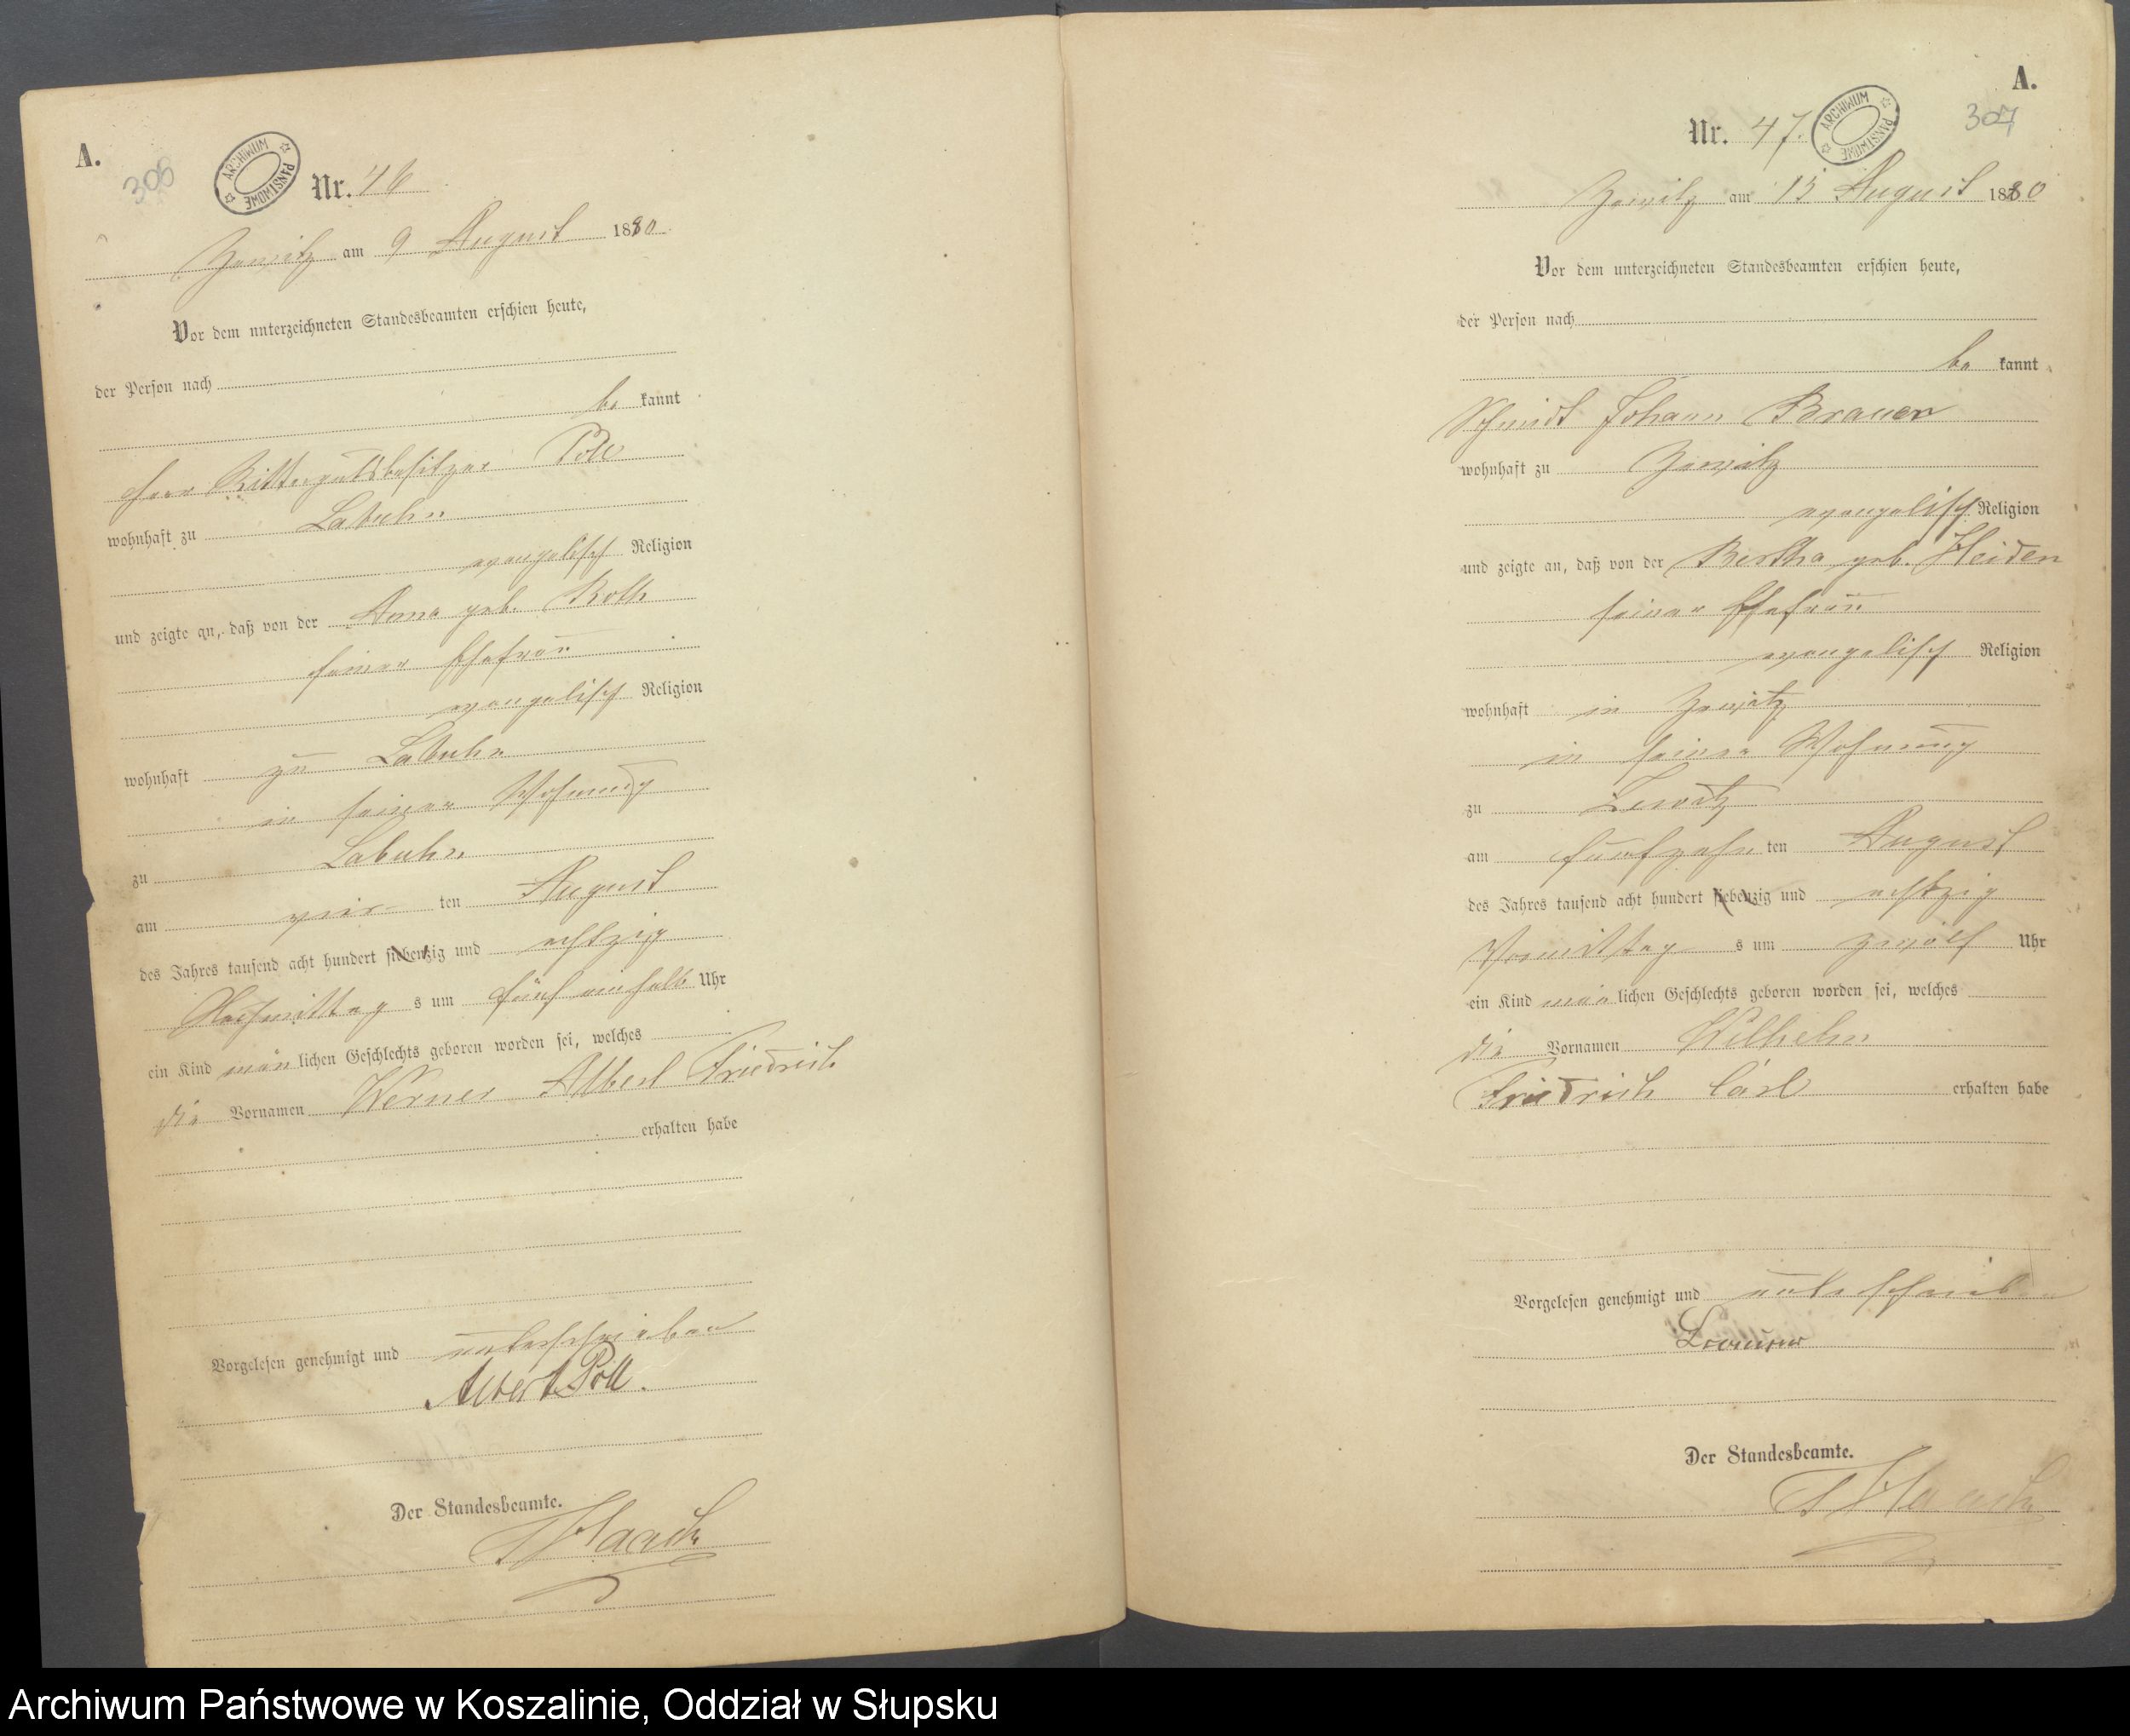 A.
306
ARCHIWUM PAŃSTWOWE
Nr. 46
Zewitz am 9 August 1880
Vor dem unterzeichneten Standesbeamten erschien heute,
der Person nach
be kannt
Herr Rittergutsbesitzer Poll
wohnhaft zu Labuhn
evangelisch Religion
und zeigte an, daß von der Anna geb. Roth
seiner Ehefrau
evangelisch Religion
wohnhaft zu Labuhn
in seiner Wohnung
zu Labuhn
am vier ten August
des Jahres tausend acht hundert siebenzig und achtzig
Nachmittag s um fünf einhalb Uhr
ein Kind män lichen Geschlechts geboren worden sei, welches
die Vornamen Werner Albert Friedrich
erhalten habe
Vorgelesen genehmigt und unterschrieben
Albert Poll.
Der Standesbeamte.
Haack
A.
307
ARCHIWUM PAŃSTWOWE
Nr. 47.
Zewitz am 15 August 1880
Vor dem unterzeichneten Standesbeamten erschien heute,
der Person nach
be kannt
Schmidt Johann Brauer
wohnhaft zu Zewitz
evangelisch Religion
und zeigte an, daß von der Bertha geb. Heiden
seiner Ehefrau
evangelisch Religion
wohnhaft in Zewitz
in seiner Wohnung
zu Zewitz
am fünfzehn ten August
des Jahres tausend acht hundert siebenzig und achtzig
Vormittag s um zwölf Uhr
ein Kind män lichen Geschlechts geboren worden sei, welches
die Vornamen Wilhelm
Friedrich Carl erhalten habe
Vorgelesen genehmigt und unterschrieben
Brauer
Der Standesbeamte.
Haack
Archiwum Państwowe w Koszalinie, Oddział w Słupsku